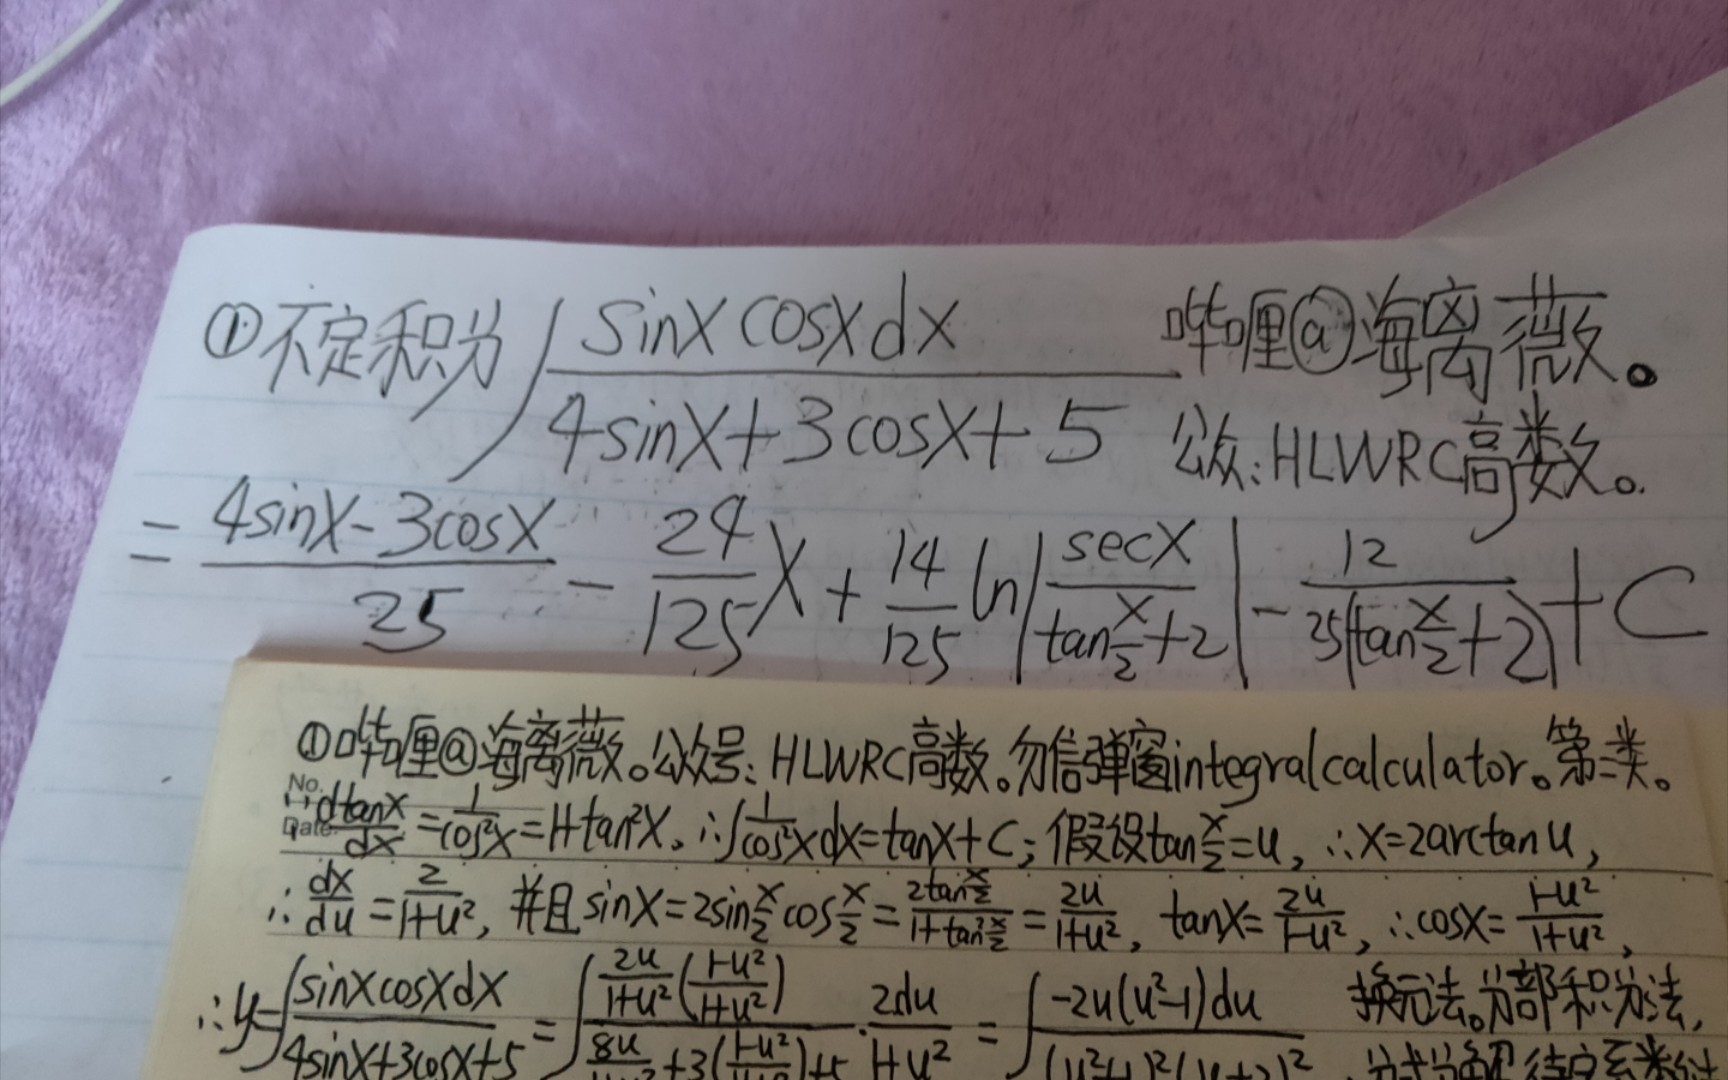 ①不定积分∫ sinxcosxdx / (4sinx+3cosx+5) 哔哩@海离薇。
公众:HLWRC高数。
= (4sinx-3cosx)/25 - 24/125 x + 14/125 ln|secx/(tan x/2 +2)| - 12/(25(tan x/2 +2)) + C
①哔哩@海离薇。公众号:HLWRC高数。勿信弹窗integralcalculator。第二类。
No.
Date
∵ dtanx/dx = 1/cos²x = 1+tan²x。∴∫ 1/cos²x dx = tanx+C; 假设tan x/2 = u, ∴x=2arctanu,
∴ dx/du = 2/(1+u²), 并且sinx=2sin x/2 cos x/2 = 2tan x/2 / (1+tan² x/2) = 2u/(1+u²), tanx= 2u/(1-u²), ∴cosx= (1-u²)/(1+u²),
∴y=∫ sinxcosxdx / (4sinx+3cosx+5) = ∫ 2u/(1+u²) ((1-u²)/(1+u²)) / (8u/(1+u²) +3((1-u²)/(1+u²))+5) · 2du/(1+u²) = ∫ -2u(u²-1)du / ((u²+1)²(u+2)²) 换元法。分部积分法,